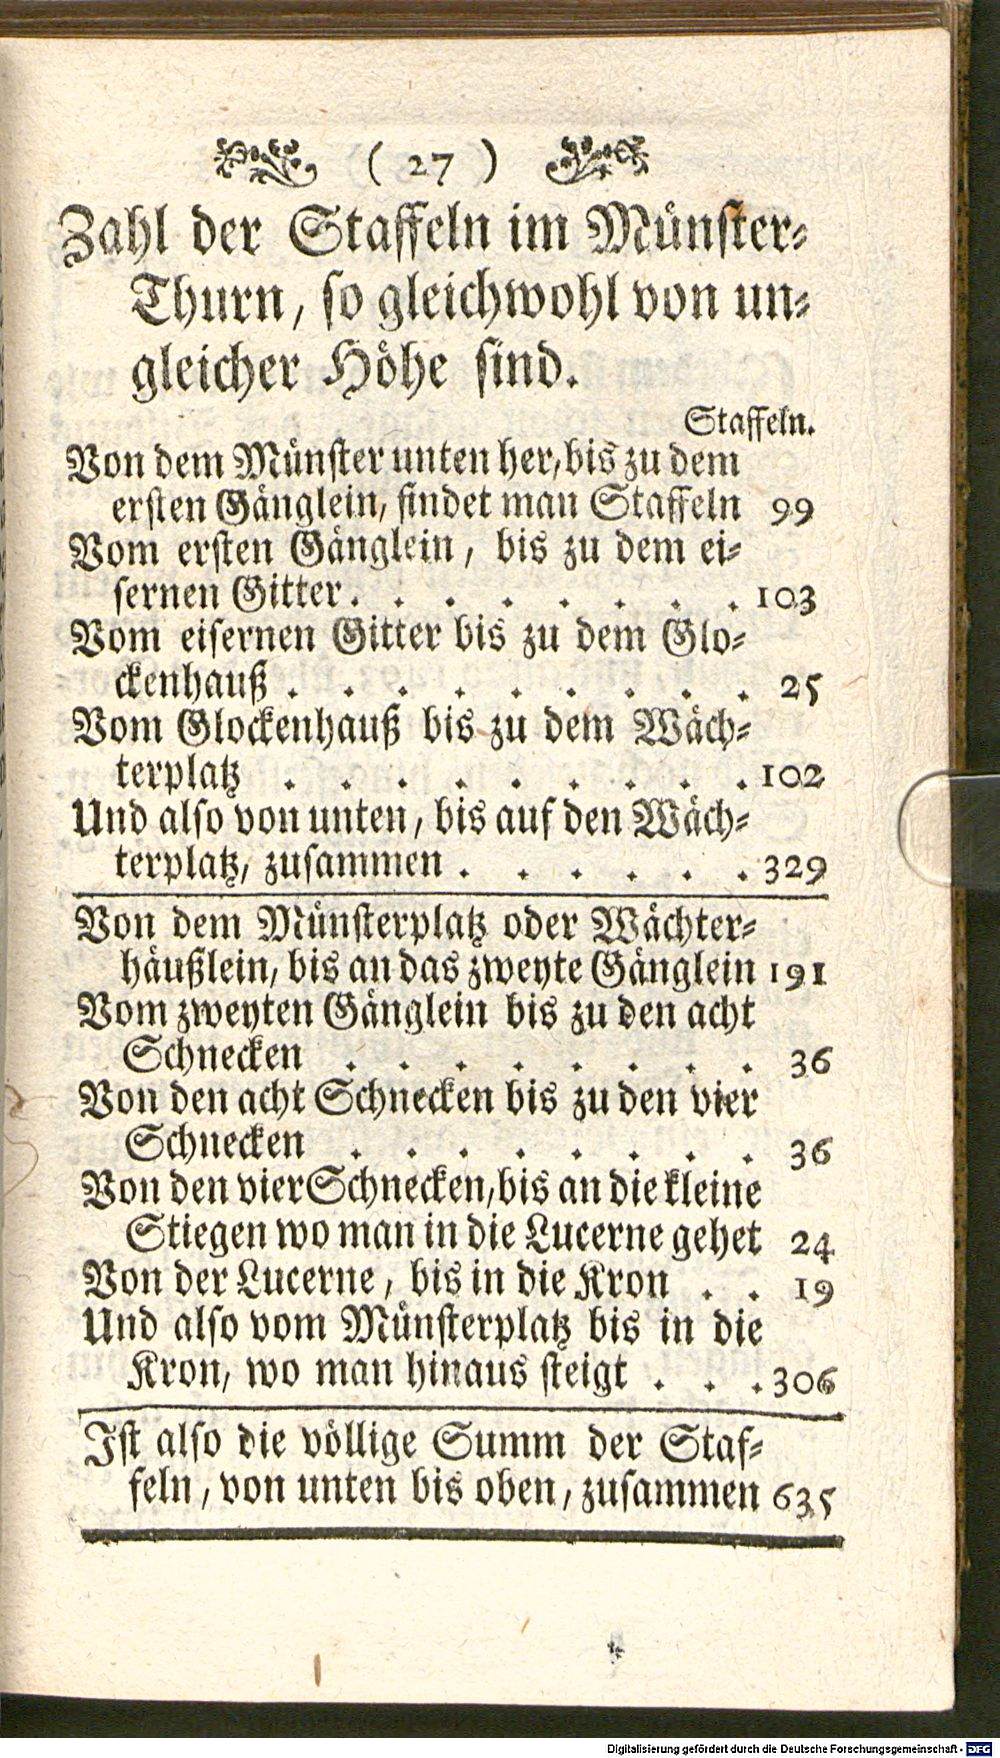 ( 27 )
Zahl der Staffeln im Münster⸗
Thurn, so gleichwohl von un⸗
gleicher Höhe sind.
Staffeln.
Von dem Münster unten her, bis zu dem
ersten Gänglein, findet man Staffeln 99
Vom ersten Gänglein, bis zu dem ei⸗
sernen Gitter . . . . . . . . 103
Vom eisernen Gitter bis zu dem Glo⸗
ckenhauß . . . . . . . . . 25
Vom Glockenhauß bis zu dem Wäch⸗
terplatz . . . . . . . . . 102
Und also von unten, bis auf den Wäch⸗
terplatz, zusammen . . . . . . 329
Von dem Münsterplatz oder Wächter⸗
häußlein, bis an das zweyte Gänglein 191
Vom zweyten Gänglein bis zu den acht
Schnecken . . . . . . . . 36
Von den acht Schnecken bis zu den vier
Schnecken . . . . . . . . 36
Von den vier Schnecken, bis an die kleine
Stiegen wo man in die Lucerne gehet 24
Von der Lucerne, bis in die Kron . . 19
Und also vom Münsterplatz bis in die
Kron, wo man hinaus steigt . . . 306
Ist also die völlige Summ der Staf⸗
feln, von unten bis oben, zusammen 635
Digitalisierung gefördert durch die Deutsche Forschungsgemeinschaft - DFG